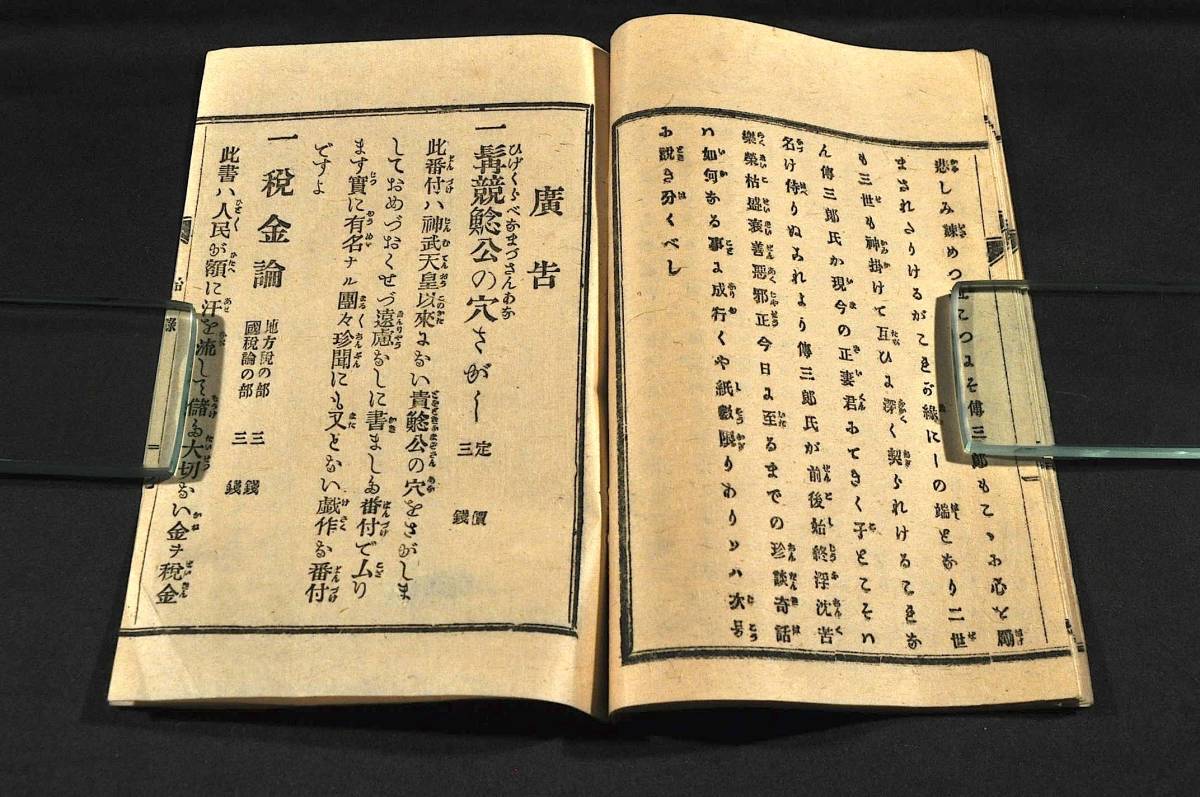 悲しみ諫めつ
まされたりけるがこれぞ縁に一の端となり二世
も三世も神掛けて互ひに深く契られけるこれな
ん傳三郎氏か現今の正妻君みてきく子とこそハ
名け侍りぬこれより傳三郎氏が前後始終浮沈苦
樂榮枯盛衰善惡邪正今日に至るまでの珍談奇話
ハ如何なる事に成行くや紙數限りありハ次号
に説き分くべし
廣告
一 髯競鯰公の穴さがし 定價三錢
此番付ハ神武天皇以來にない貴鯰公の穴をさがしま
しておめづおくせづ遠慮なしに書ました番付で厶り
ます實に有名ナル團々珍聞にも又とない戲作な番付
ですよ
一 税金論 地方税の部 三錢
國税論の部 三錢
此書ハ人民が額に汗を流して儲た大切ない金ヲ税金